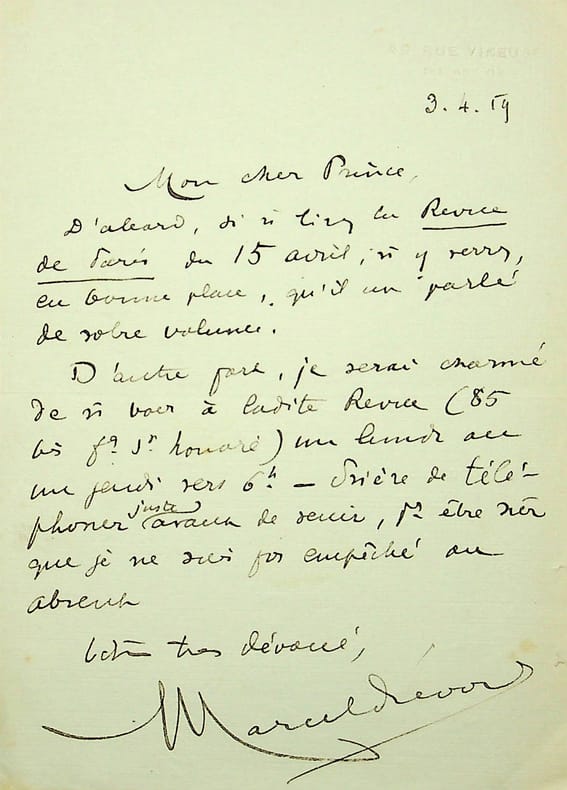 49 RUE VINEUSE
3.4.19
Mon cher Prince,
D'abord, si v. lisez la Revue
de Paris du 15 avril, v. y verrez,
en bonne place, qu'il est parlé
de votre volume.
D'autre part, je serai charmé
de v. voir à ladite Revue (85
bis fg St honoré) un lundi ou
un jeudi vers 6h - Prière de télé-
phoner juste avant de venir, pr être sûr
que je ne suis pas empêché ou
absent
Votre très dévoué,
Marcel Prévost